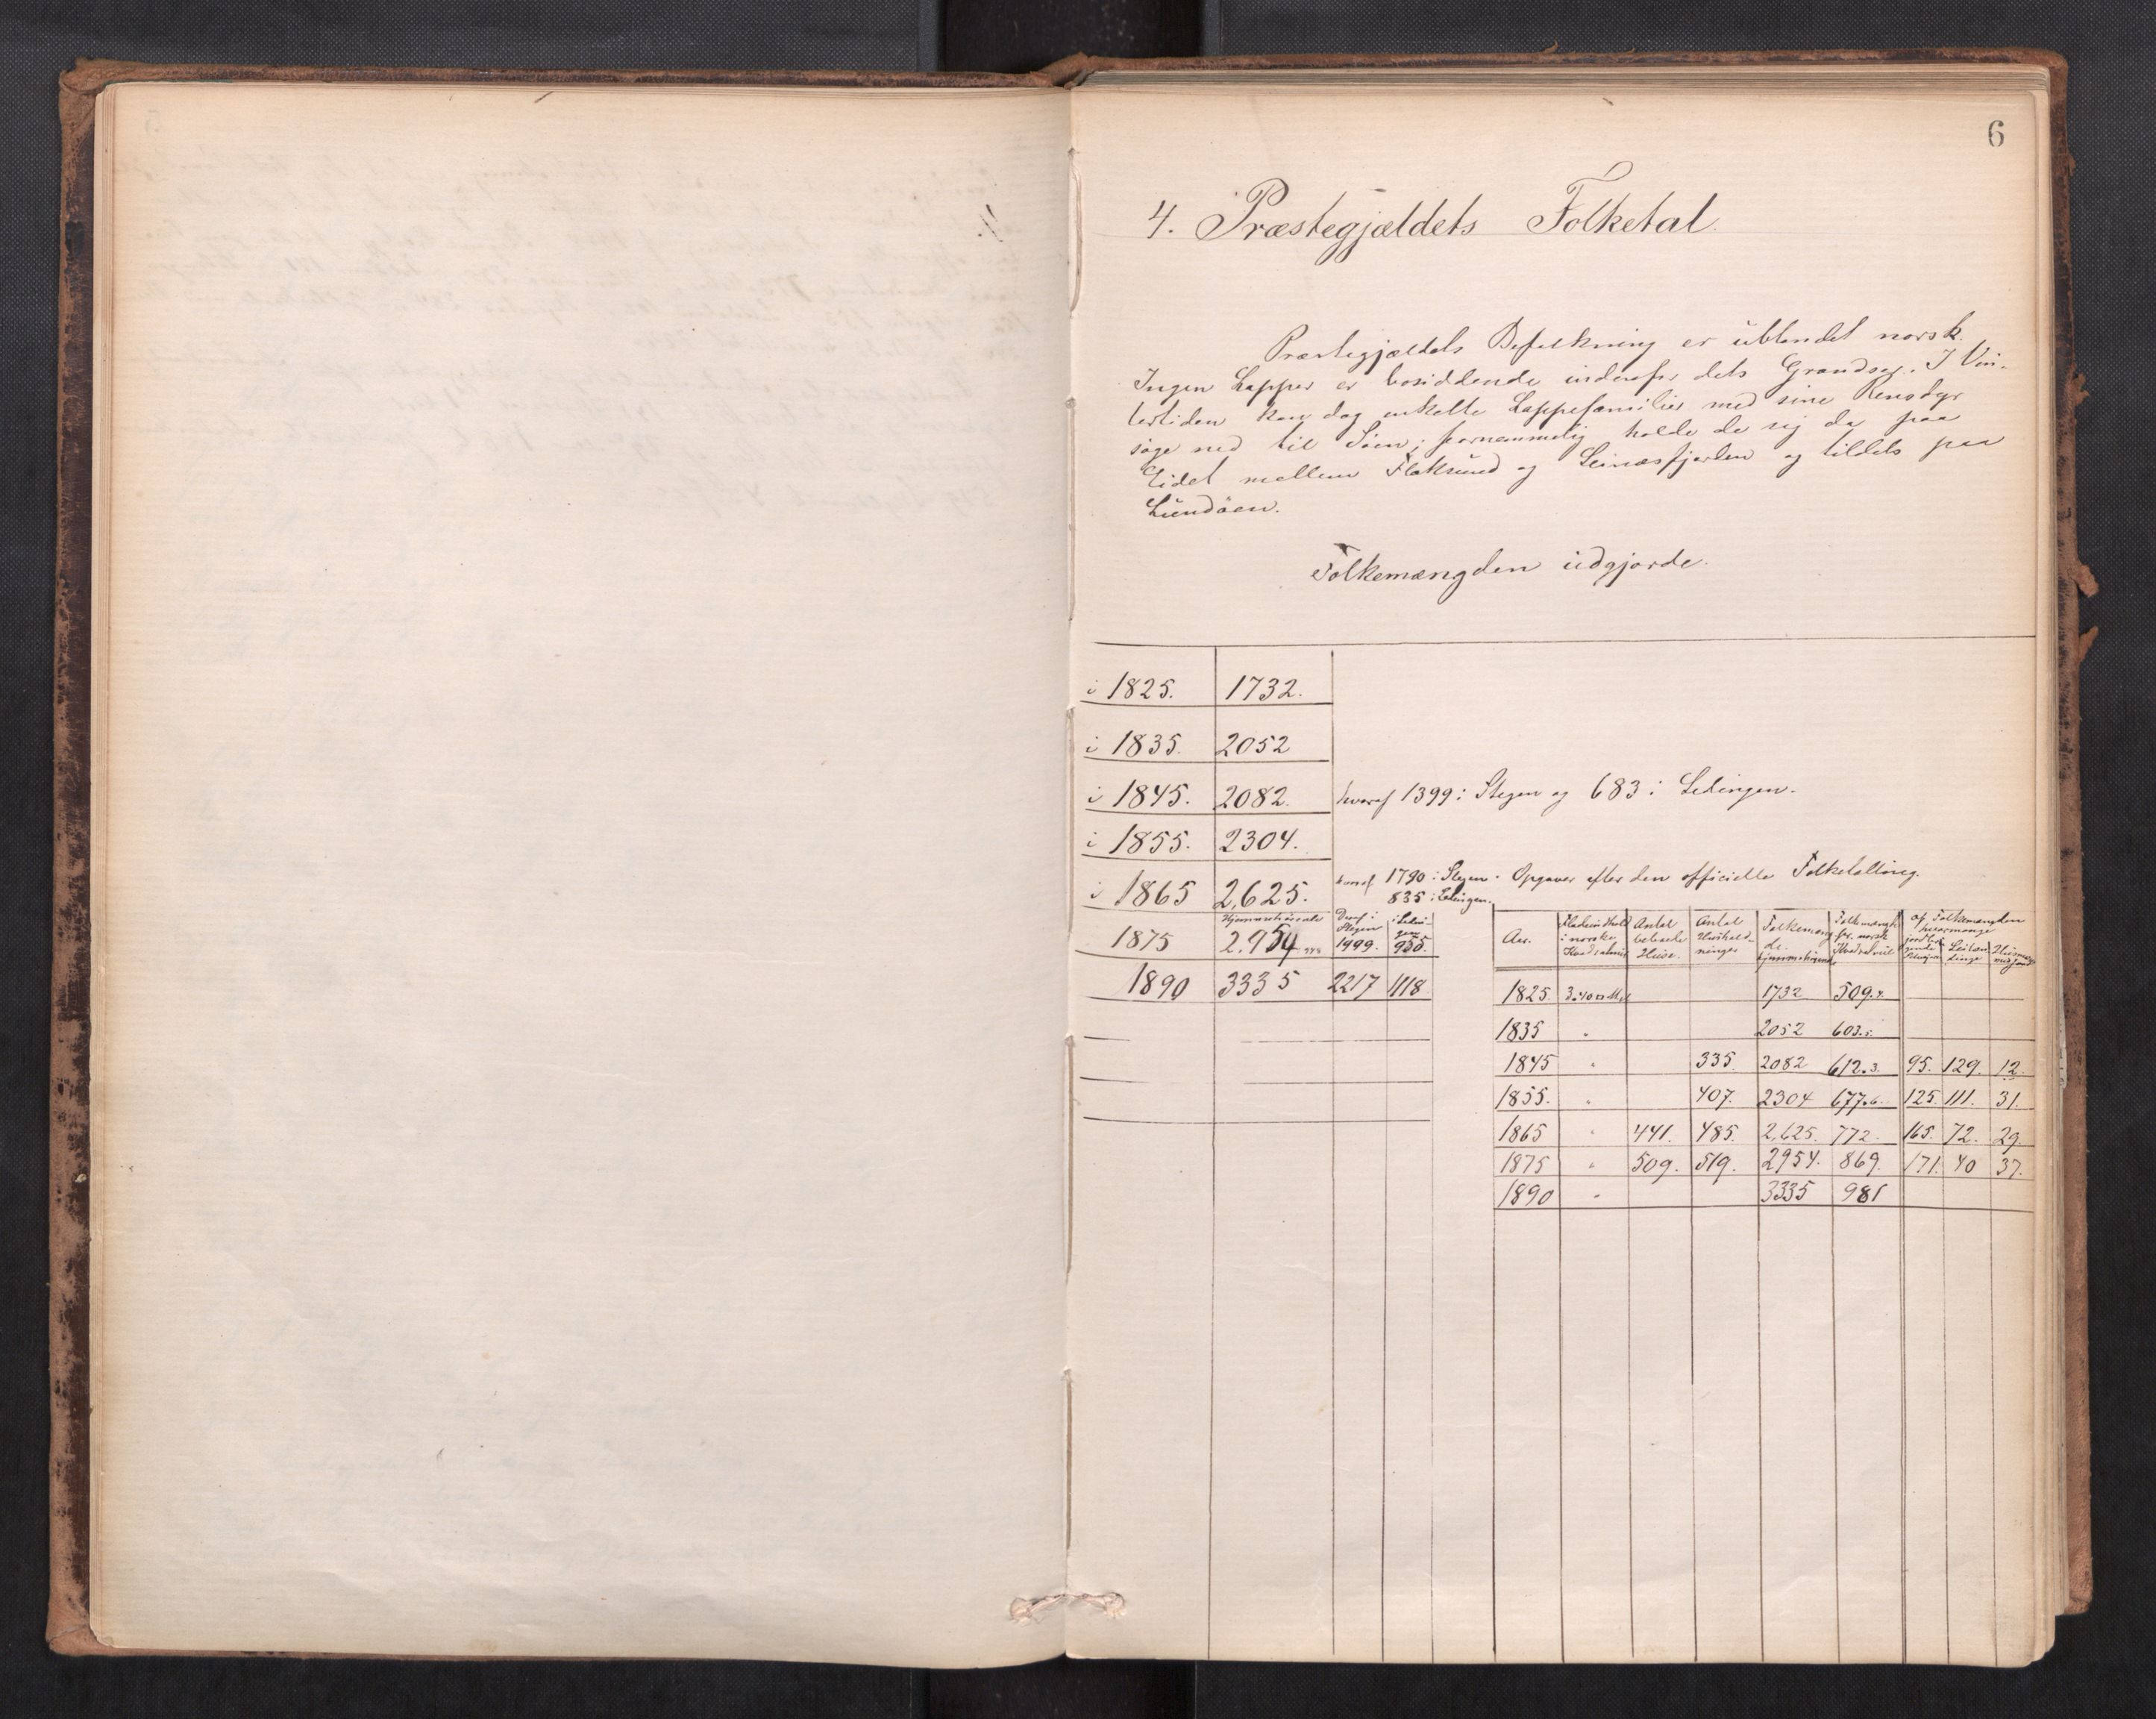 6
4. Præstegjældets Folketal.
Præstegjældets Befolkning er ublandet norsk.
Ingen Lapper er bosiddende indenfor dets Grændser. I Vin-
tertiden kan dog enkelte Lappefamilier med sine Rensdyr
søge ned til Søen; fornemmelig holde de sig da paa
Eidet mellem Flaksund og Leinæsfjorden og tildels paa
Lundöen.
Folkemængden udgjorde.
i 1825. 1732.
i 1835. 2052
i 1845. 2082. hvoraf 1399 i Stegen og 683 i Ledingen.
i 1855. 2304.
i 1865 2,625. hvoraf 1790 i Stegen. Opgaver efter den officielle Folketælling.
835 i
Hjemmehørende Deraf i Stegen
1875 2.954 1999. 955.
1890 3335 2217 1118
Aar. Fladeindhold i norske Kvadratmil Antal beboede Huse. Antal Husholdninger Folkemængde hjemmehørende Folkemængde pr. norsk Kvadratmil Af Folkemængden Huusmænd med Jord
1825. 3.40 □ Mil 1732 509.4
1835 " 2052 603.5
1845 " 335. 2082 612.3. 95. 129. 12.
1855. " 407. 2304 677.6. 125. 111. 31.
1865 " 441. 485. 2,625. 772. 165. 72. 29.
1875 " 509. 519. 2954. 869. 171. 40 37.
1890 " 3335 981